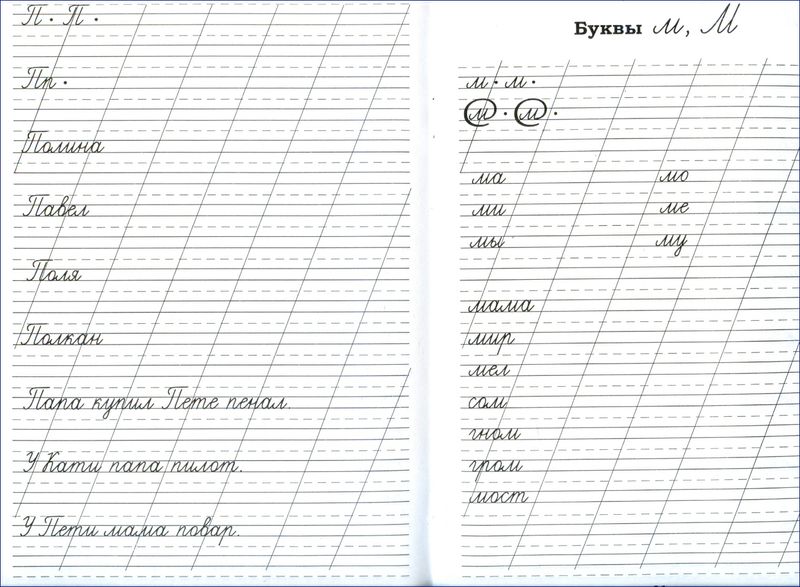 П · П ·
Пп ·
Полина
Павел
Поля
Полкан
Папа купил Пете пенал.
У Кати папа пилот.
У Пети мама повар.
Буквы м, М
м · м ·
м · м ·
ма мо
ми ме
мы му
мама
мир
мел
сом
гном
гром
мост